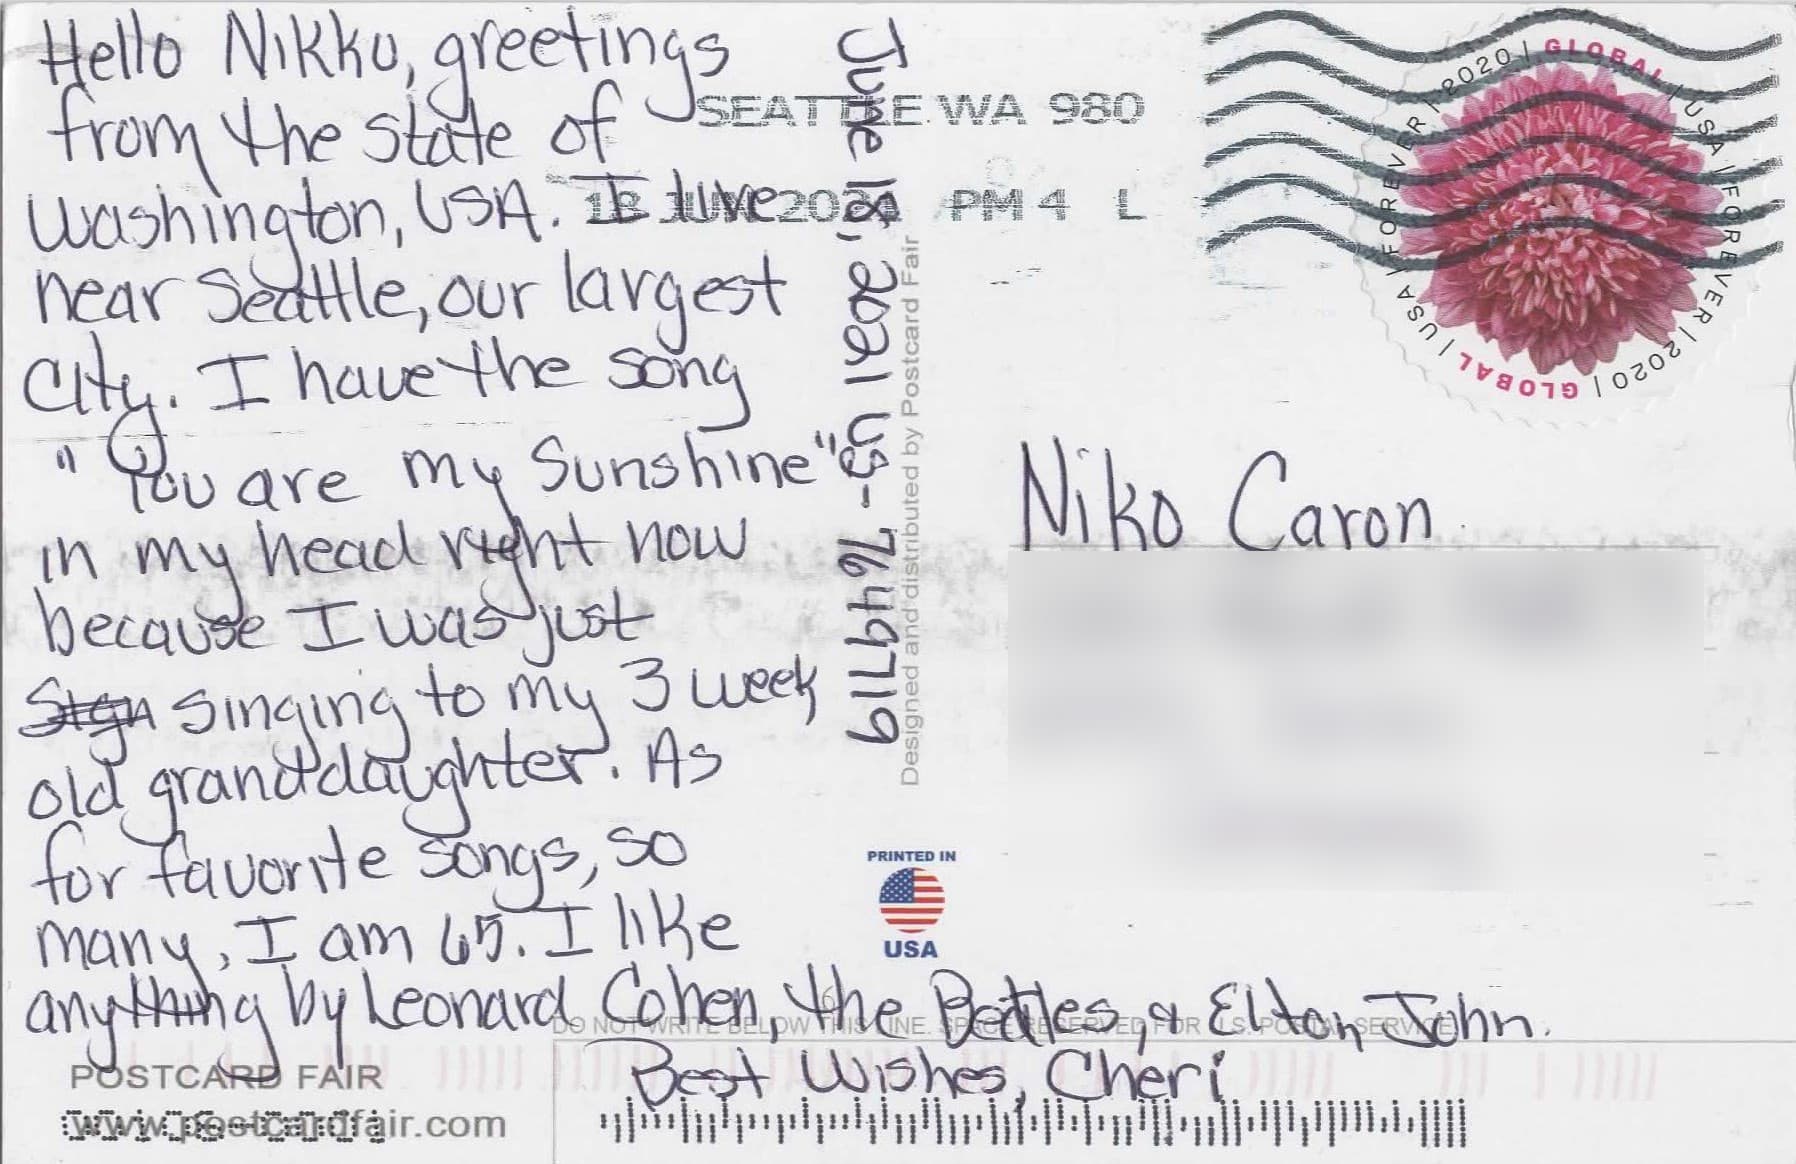 Hello Nikko, greetings
from the state of
Washington, USA. I live
near Seattle, our largest
city. I have the song
"You are my Sunshine"
in my head right now
because I was just
Sign singing to my 3 week
old granddaughter. As
for favorite songs, so
many, I am 65. I like
anything by Leonard Cohen, the Beatles, & Elton John.
Best Wishes, Cheri
June 18, 2021 US-7649719
Designed and distributed by Postcard Fair
SEATTLE WA 980
18 JUN 2021 PM 4 L
GLOBAL | USA | FOREVER | 2020 | GLOBAL | USA | FOREVER | 2020 |
Niko Caron
PRINTED IN
USA
DO NOT WRITE BELOW THIS LINE. SPACE RESERVED FOR U.S. POSTAL SERVICE
POSTCARD FAIR
www.postcardfair.com